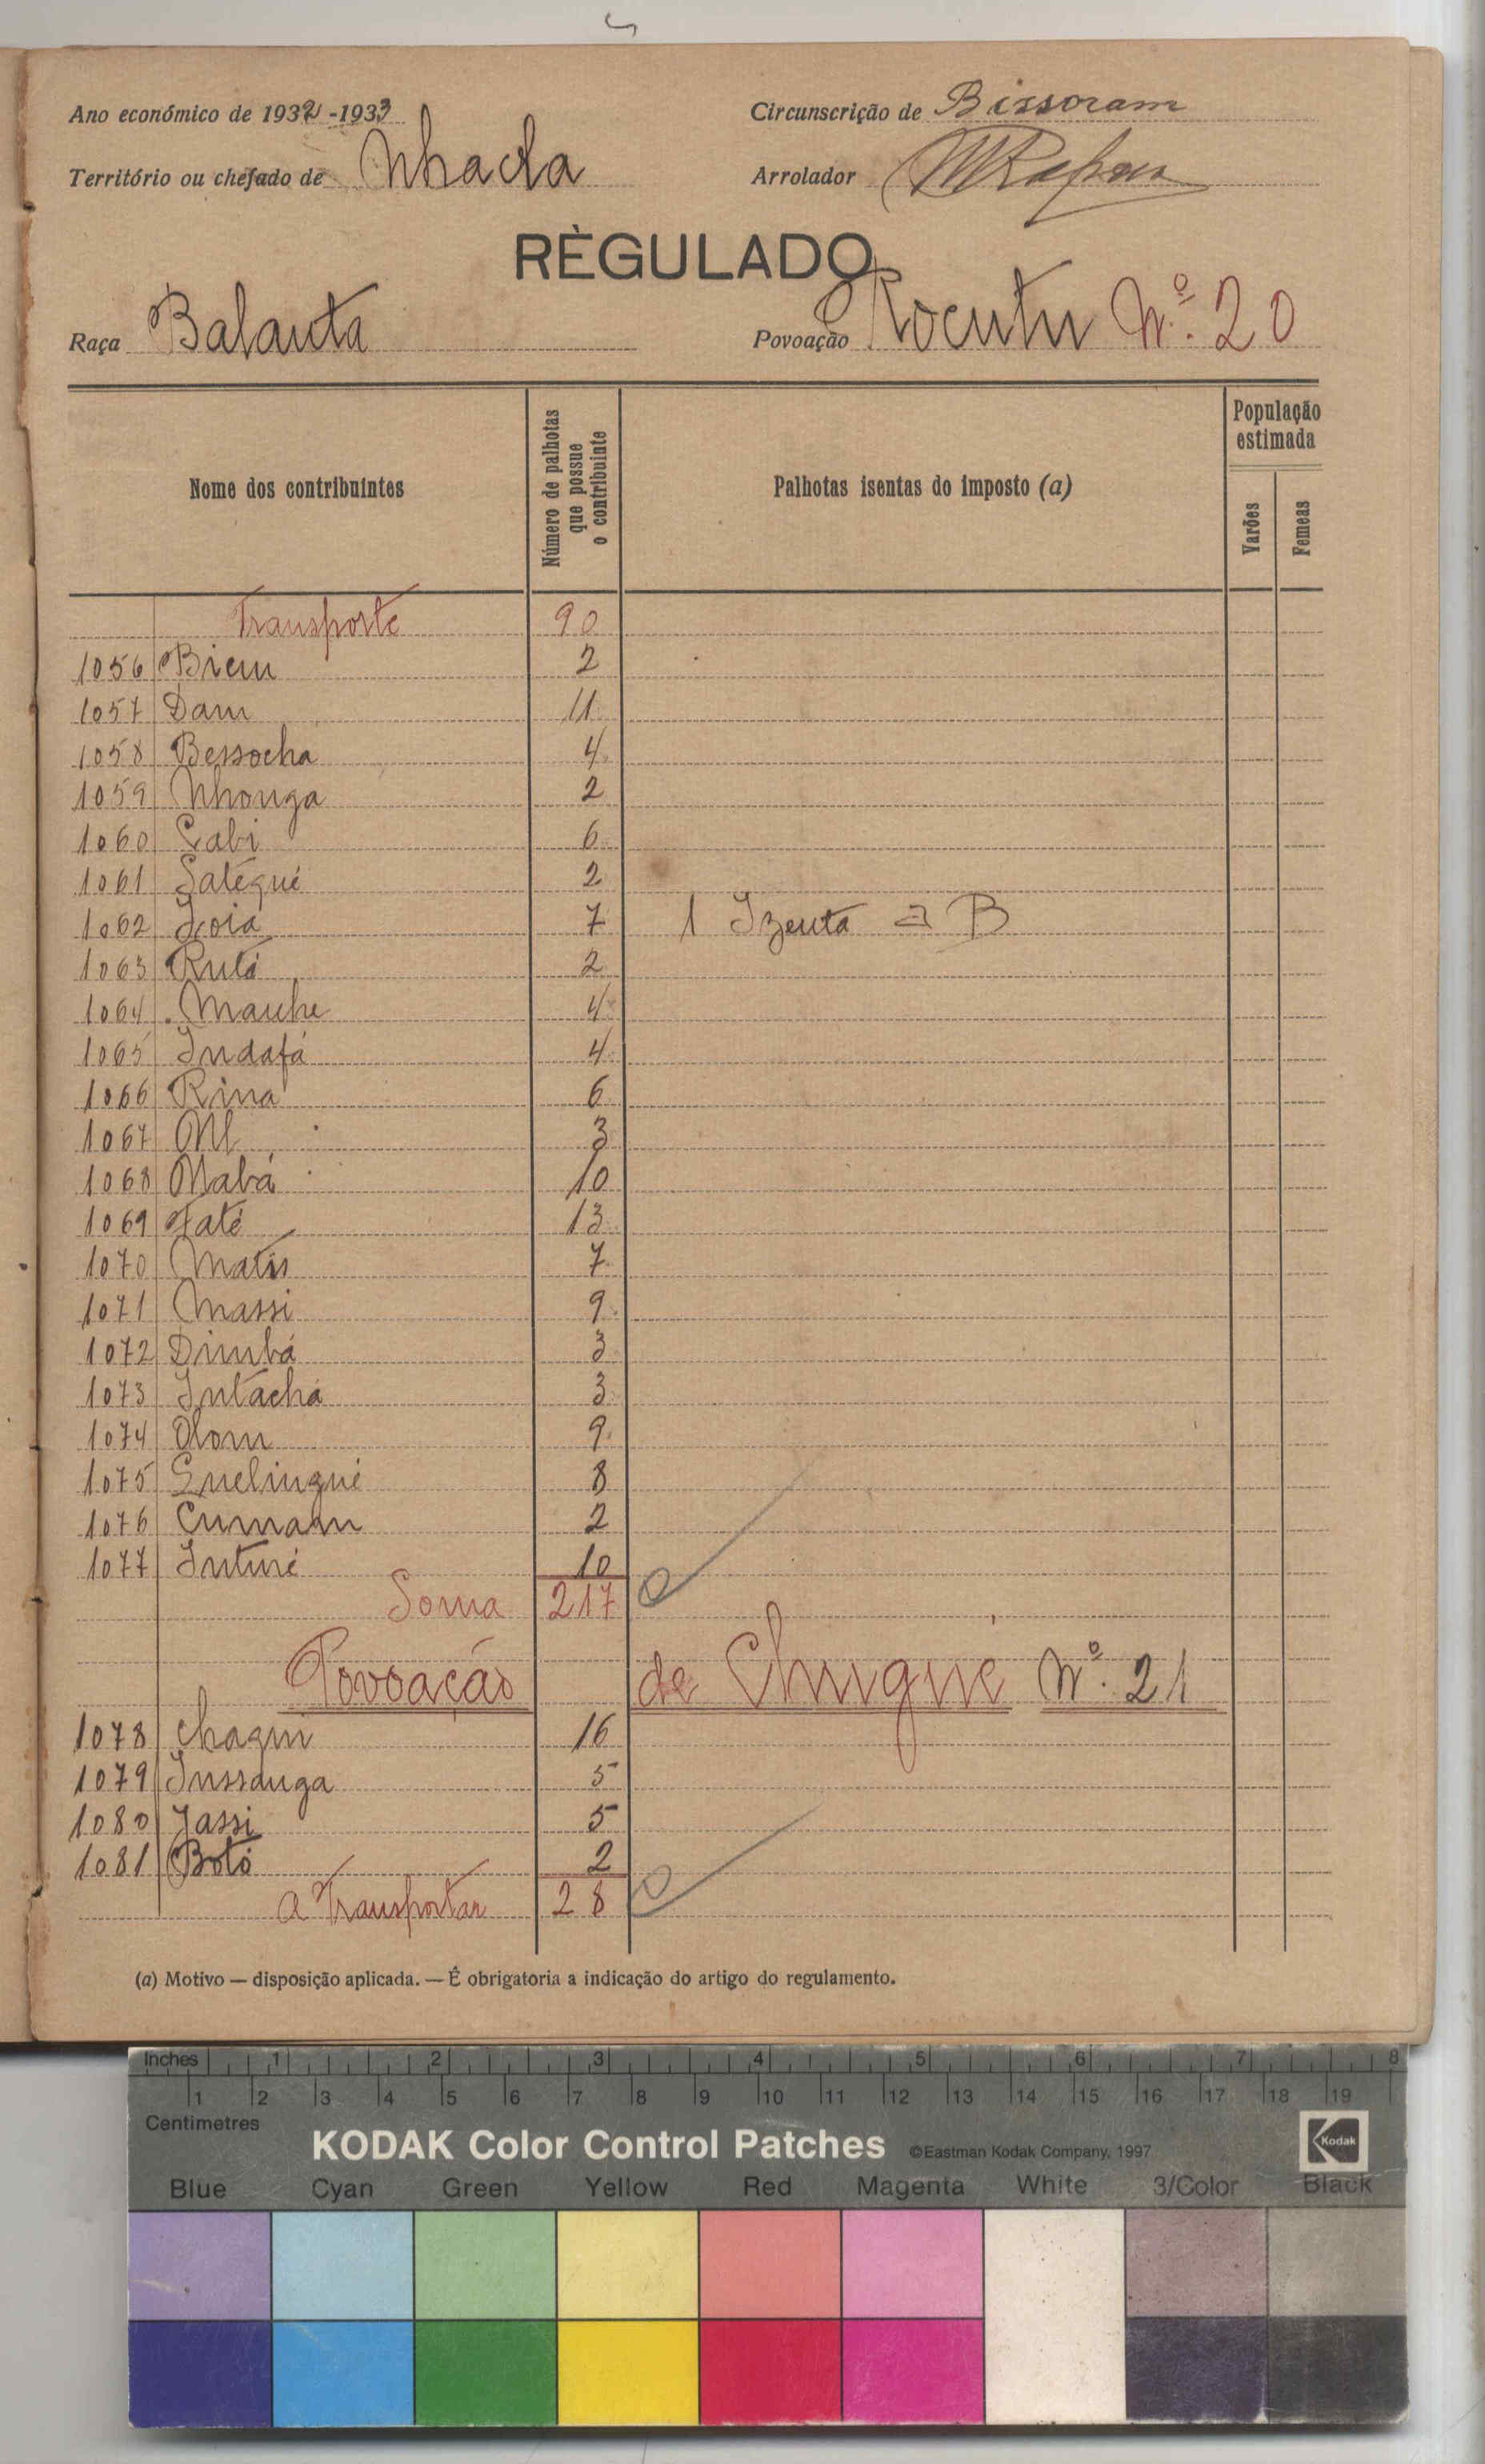 Ano económico de 1932-1933 Circunscrição de Bissoram
Território ou chefado de Nhacla Arrolador
RÈGULADO
Raça Balanta Povoação Rocutu Nº. 20
Nome dos contribuintes Número de palhotas que possue o contribuinte Palhotas isentas do imposto (a) População estimada Varões Femeas
Transporte 90
1056 Bieu 2
1057 Dam 11
1058 Bessocha 4
1059 Nhonga 2
1060 Cabi 6
1061 Satégué 2
1062 Joiá 7 1 Izenta a B
1063 Rutá 2
1064 Manhe 4
1065 Indafá 4
1066 Rina 6
1067 3
1068 Mabá 10
1069 Faté 13
1070 Matis 7
1071 Massi 9
1072 Dimbá 3
1073 Intachá 3
1074 Olom 9
1075 Enelingué 8
1076 Cumam 2
1077 Inturé 10
Soma 217
Povoação de Chugué Nº. 21
1078 Chagui 16
1079 Inssanga 5
1080 Jassi 5
1081 Botó 2
A Transportar 28
(a) Motivo — disposição aplicada. — É obrigatoria a indicação do artigo do regulamento.
Inches 1 2 3 4 5 6 7 8
1 2 3 4 5 6 7 8 9 10 11 12 13 14 15 16 17 18 19
Centimetres
KODAK Color Control Patches ©Eastman Kodak Company, 1997 Kodak
Blue Cyan Green Yellow Red Magenta White 3/Color Black